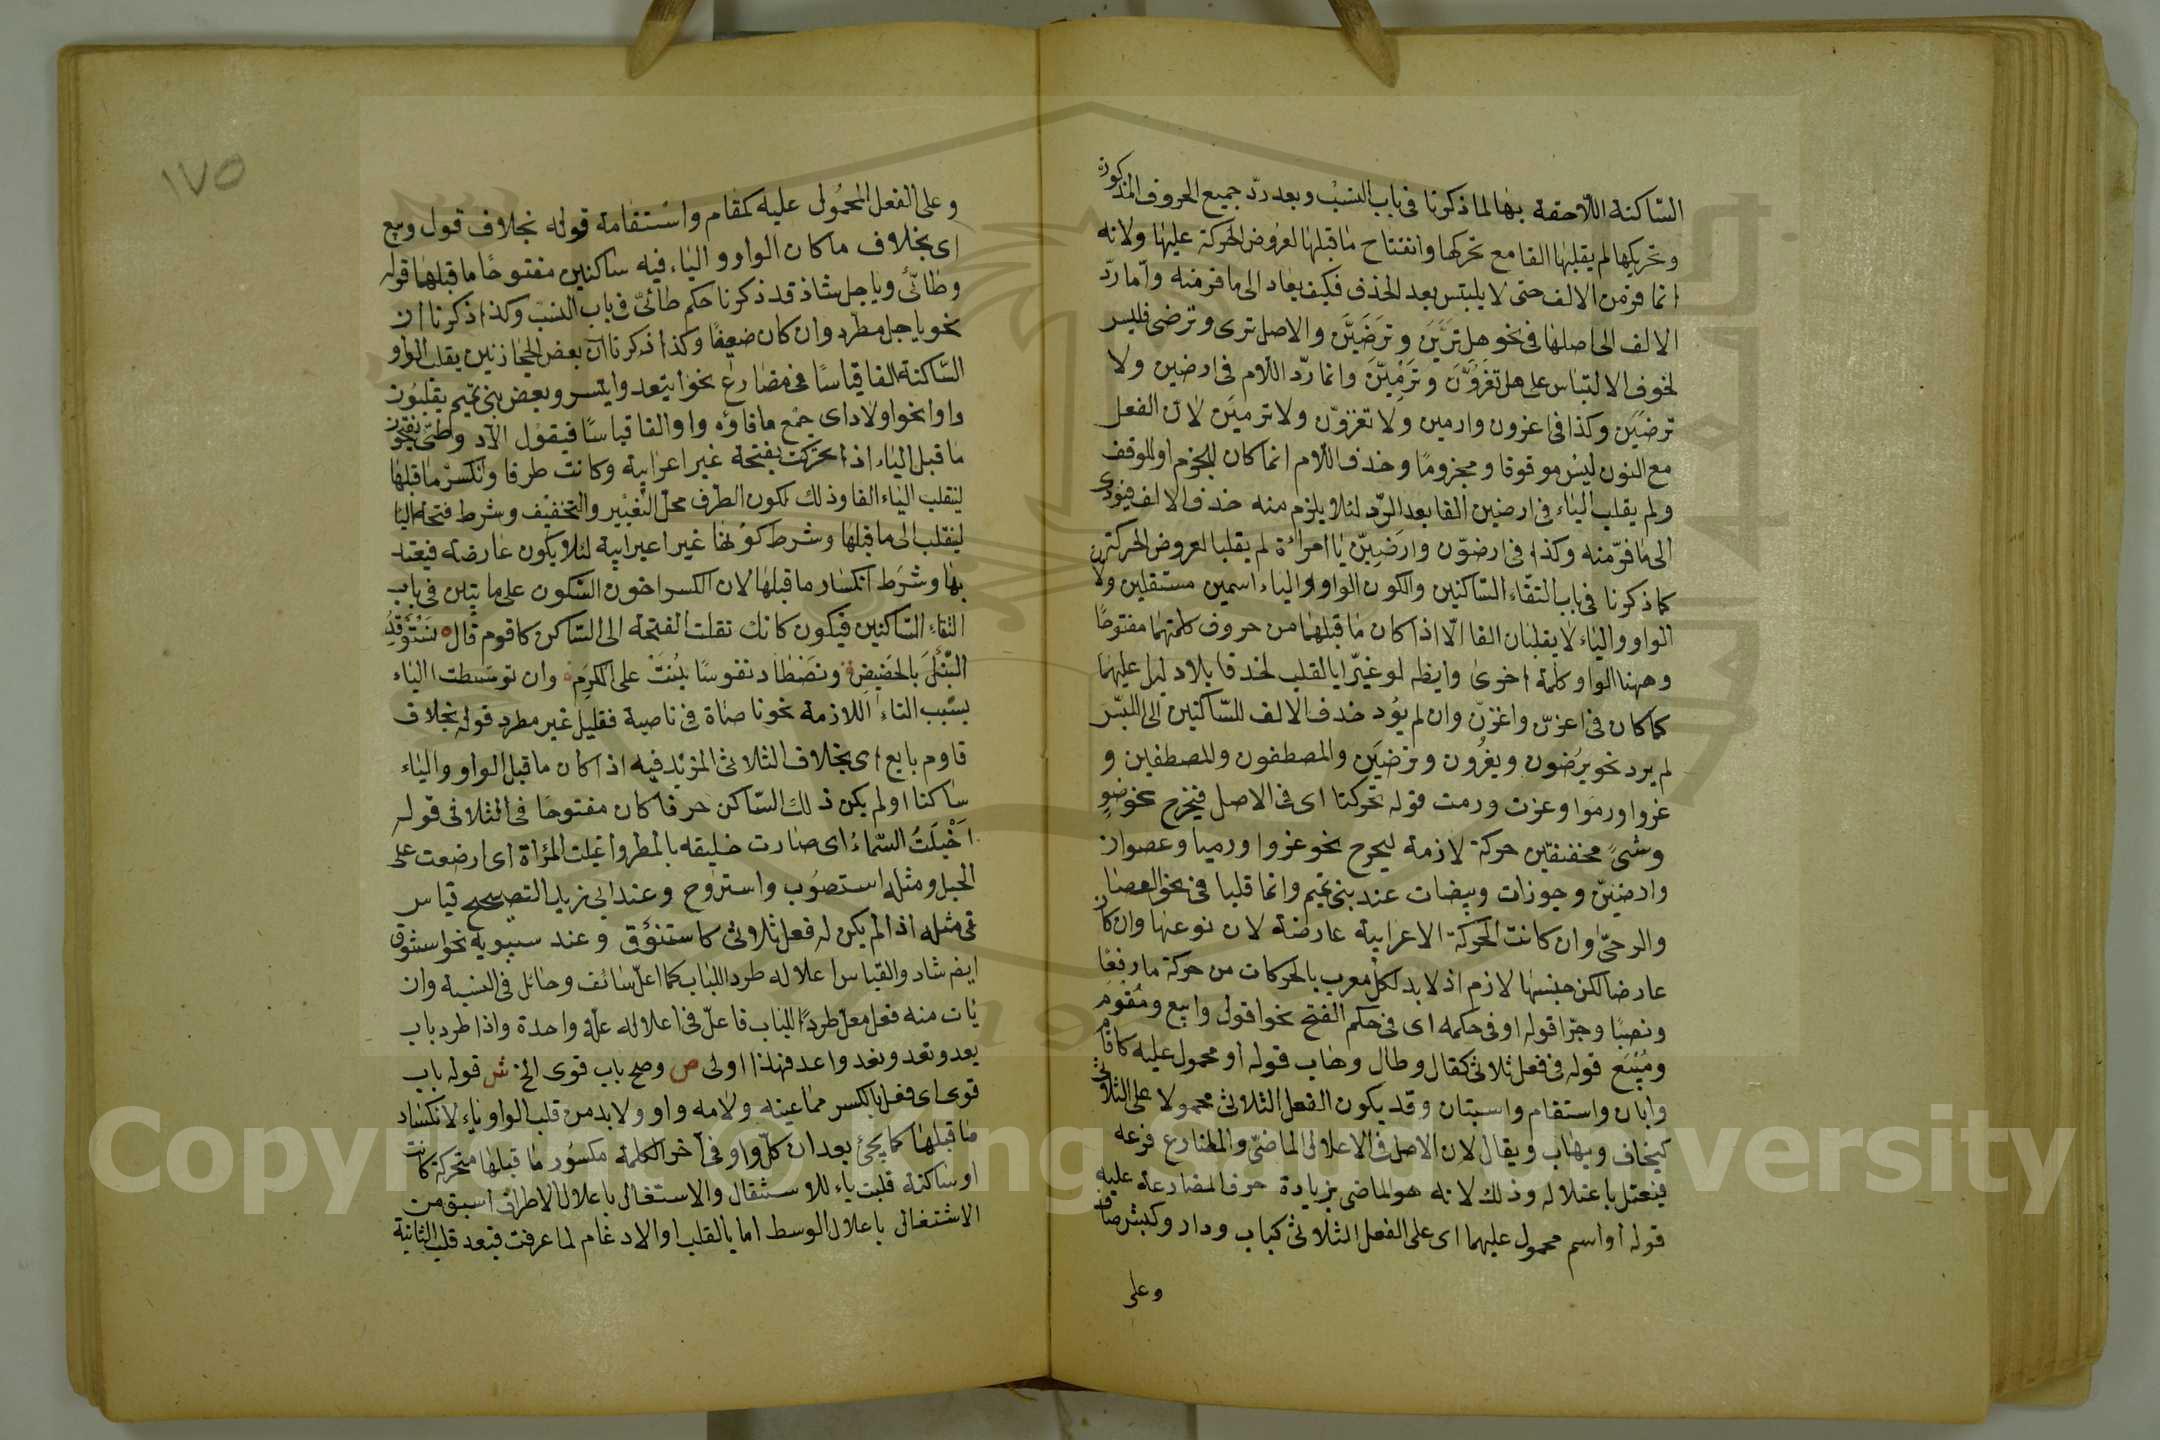 الساكنة اللاحقة بها لما ذكرنا فى باب النسب وبعد ردّ جميع الحروف المذكورة
وتحريكها لم يقلبها الفا مع تحركها وانفتاح ما قبلها لعروض الحركة عليها ولانه
انما فرّ من الالف حتى لا يلبتس بعد الحذف فكيف يعاد الى ما فرّ منه وامّا ردّ
الالف الى اصلها فى نحو هل تَرَيَنَّ وتَرضَيَنَّ والاصل ترى وترضى فليس
لخوف الالتباس على هل تغزُوَنَّ وتَرْمِيَنَّ وانما ردّ اللام فى ارضين ولا
ترضَيَن وكذا فى اغزون وارمين ولا تغزوّن ولا ترميَن لان الفعل
مع النون ليس موقوفا ومجزومًا وحذف اللام انما كان للجزم او للوقف
ولم يقلب الياء فى ارضين الفا بعد الردّ لئلا يلزم منه حذف الالف فيؤدى
الى ما فرّ منه وكذا فى ارضوّن وارضَيِنّ يا امراءة لم يقلبا لعروض الحركتين
كما ذكرنا فى باب التقاء الساكنين والكون الواو والياء اسمين مستقلين ولا
الواو والياء لا يقلبان الفا الّا اذا كان ما قبلهما من حروف كلمتهما مفتوحًا
وههنا الواو كلمة اخرى وايظه لو غيّرا يالقلب لحذفا بلا دليل عليهما
كما كان فى اعزنّ واغزنّ وان لم يؤد حذف الالف للسّاكنين الى اللبس
لم يرد نحو يرضون ويغزُون وترضَيَن والمصطفون والمصطفين و
غزوا ورموا وغزت ورمت قوله تحركتا اى فى الاصل فيخرج نحو ضوٍ
وشىً مخففتين حركة لازمة ليخرج نحو غزوا ورميا وعصوان
وارضيَنّ وجوزات وبيضات عند بنى تميم وانما قلبا فى نحو العصا
والرحىّ وان كانت الحركة الاعرابية عارضة لان نوعها وان كان
عارضا لكن جنسها لازم اذ لا بد لكل معرب بالحركات من حركة ما رفعا
ونصبًا وجرّا قوله او فى حكمه اى فى حكم الفتح نحو اقول وابيع ومُقوَم
ومُبْيَع قوله فى فعل ثلاثى كقال وطال وهاب قوله او محمول عليه كاقام
وابان واستقام واستبان وقد يكون الفعل الثلاثى محمولا على الثلاثى
كيخاف ويهاب ويقال لان الاصل فى الاعلال الماضىّ والمضارع فرعه
فيعتل باعتلاله وذلك لانه هو الماضى بزيادة حرف المضارعة عليه
قوله او اسم محمول عليهما اى على الفعل الثلاثى كباب ودار وكبش صافٍ
وعلى
١٧٥
وعلى الفعل المحمول عليه كمقام واستقامة قوله بخلاف قول وبيع
اى بخلاف ما كان الواو والياء فيه ساكنين مفتوحًا ما قبلها قوله
وطائىّ وياجل شاذ قد ذكرنا حكم طائىّ فى باب النسب وكذا ذكرنا ان
نحو ياجل مطرد وان كان ضعيفًا وكذا ذكرنا ان بعض الحجازيين يقلب الواو
السّاكنة الفا قياسًا فى مضارع نحو ايتعد وايتسر وبعض بنى تميم يقلبون
واوا نحو اولاد اى جمع ما فاؤه واو الفا قياسًا فيقول الآد وطىّء يفتحون
ما قبل الياء اذا تحركت بفتحة غير اعرابية وكانت طرفا وانكسر ما قبلها
لينقلب الياء الفا وذلك لكون الطرف محل التغيير والتخفيف وشرط فتحة الياء
لينقلب الى ما قبلها وشرط كونها غير اعيرابية لئلا يكون عارضة فيعتد
بها وشرط انكسار ما قبلها لان الكسر اخون السّكون على ما يتبين فى باب
التقاء السّاكنين فيكون كانك نقلت الفتحة الى السّاكن كاقوم قال ٥ نَستَوقِدُ
النَّبْلَ بالحَضيضِ ونَصْطاد نفوسًا بُنتَ على الكرم وان توسّطت الياء
بسبب التاء اللازمة نحو ناصاة فى ناصية فقليل غير مطرد قوله بخلاف
قاوم بايع اى بخلاف الثلاثى المزيد فيه اذا كان ما قبل الواو والياء
ساكنا او لم يكن ذلك السّاكن حرفا كان مفتوحًا فى الثلاثى قوله
اَخْيَلَتُ السّماءُ اى صارت خليقه بالمطر واغيلت المرأة اى ارضعت على
الحبل ومثله استصوب واستروح وعند ابى زيد التصحيح قياس
فى مثله اذا لم يكن له فعل ثلاثى كاستنوق وعند سيبويه نحو استنوق
ايضا شاذ والقياس اعلاله طرد اللباب كما اعلّ سائف وحائل فى النسبة وان
يات منه فعل معل طردًا للباب فاعلّ فى اعلاله علّة واحدة واذا طرد باب
يعد وتعد ونعد واعد فهذا اولى ص وصح باب قوى الخ ش قوله باب
قوى اى فعل بالكسر مما عينه ولامه واو ولا بد من قلب الواو ياء لانكساد
ما قبلها كما يجئ بعد ان كل واو فى آخر الكلمة مكسور ما قبلها متحركة كانت
او ساكنة قلبت ياء للاستثقال والاستغال باعلال الاطراف اسبق من
الاشتغال باعلال الوسط اما بالقلب او الادغام لما عرفت فبعد قلب الثانية
Copyright © King Saud University